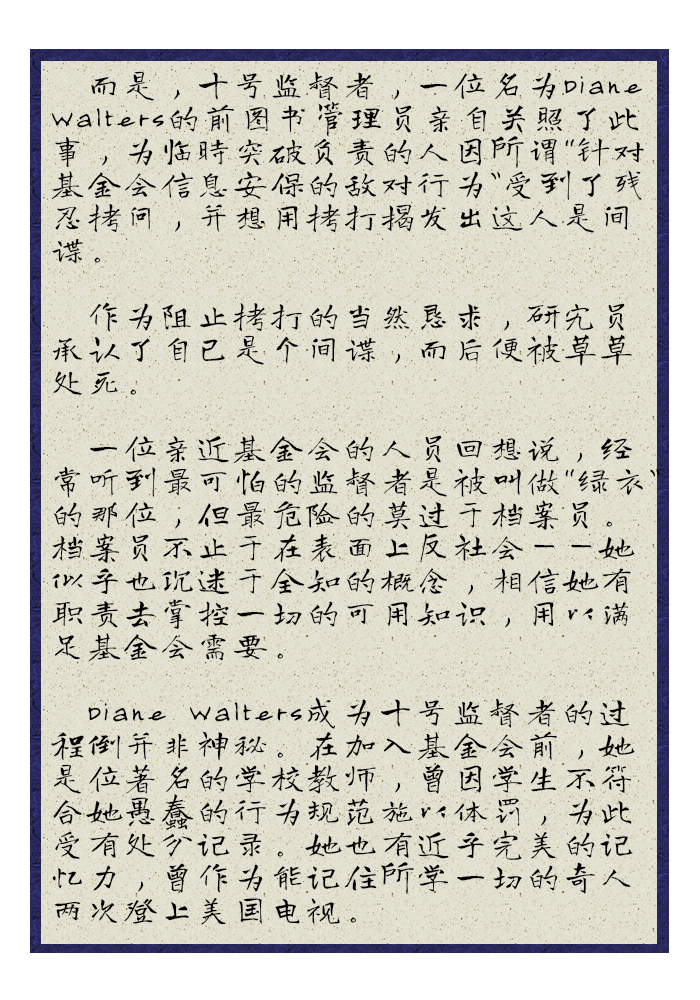 而是，十号监督者，一位名为Diane
Walters的前图书管理员亲自关照了此
事，为临時突破负责的人因所谓“针对
基金会信息安保的敌对行为”受到了残
忍拷问，并想用拷打揭发出这人是间
谍。
作为阻止拷打的当然恳求，研究员
承认了自己是个间谍，而后便被草草
处死。
一位亲近基金会的人员回想说，经
常听到最可怕的监督者是被叫做“绿衣”
的那位，但最危险的莫过于档案员。
档案员不止于在表面上反社会——她
似乎也沉迷于全知的概念，相信她有
职责去掌控一切的可用知识，用以满
足基金会需要。
Diane Walters成为十号监督者的过
程倒并非神秘。在加入基金会前，她
是位著名的学校教师，曾因学生不符
合她愚蠢的行为规范施以体罚，为此
受有处分记录。她也有近乎完美的记
忆力，曾作为能记住所学一切的奇人
两次登上美国电视。